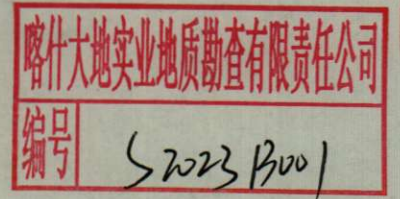 喀什大地实业地质勘查有限责任公司
编号 S2023B001